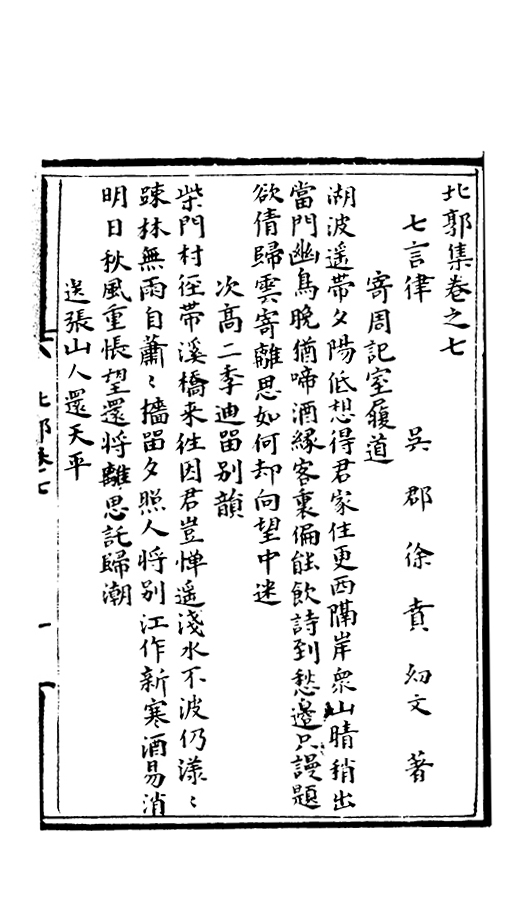 北郭集卷之七
七言律　吳郡徐賁幼文著
寄周記室履道
湖波遥帶夕陽低想得君家住更西隔岸衆山晴稍出
當門幽鳥晚猶啼酒緣客裏偏能飲詩到愁邊只謾題
欲倩歸雲寄離思如何却向望中迷
次高二季迪留别韻
柴門村徑帶溪橋来往因君豈憚遥淺水不波仍漾〻
踈林無雨自蕭〻墻留夕照人将别江作新寒酒易消
明日秋風重悵望還将離思託歸潮
送張山人還天平
北郭卷七
一